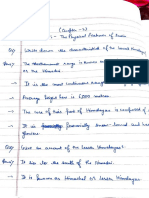 (Chapter - 2)
- The Physical Features of India
Q1) Write down the characteristics of the Great Himalayas?
Ans:- The northernmost range is known as
or the Himadri
→ It is the most continuous range
→ Average height is 6,000 metres
→ The core of this part of Himalayas is composed of
→ It is perennially snow-bound and
glaciers
Q2) Give an account of the lesser Himalayas?
Ans:- It lies to the south of the Himadri
→ It is known as Himachal or lesser Himalayas